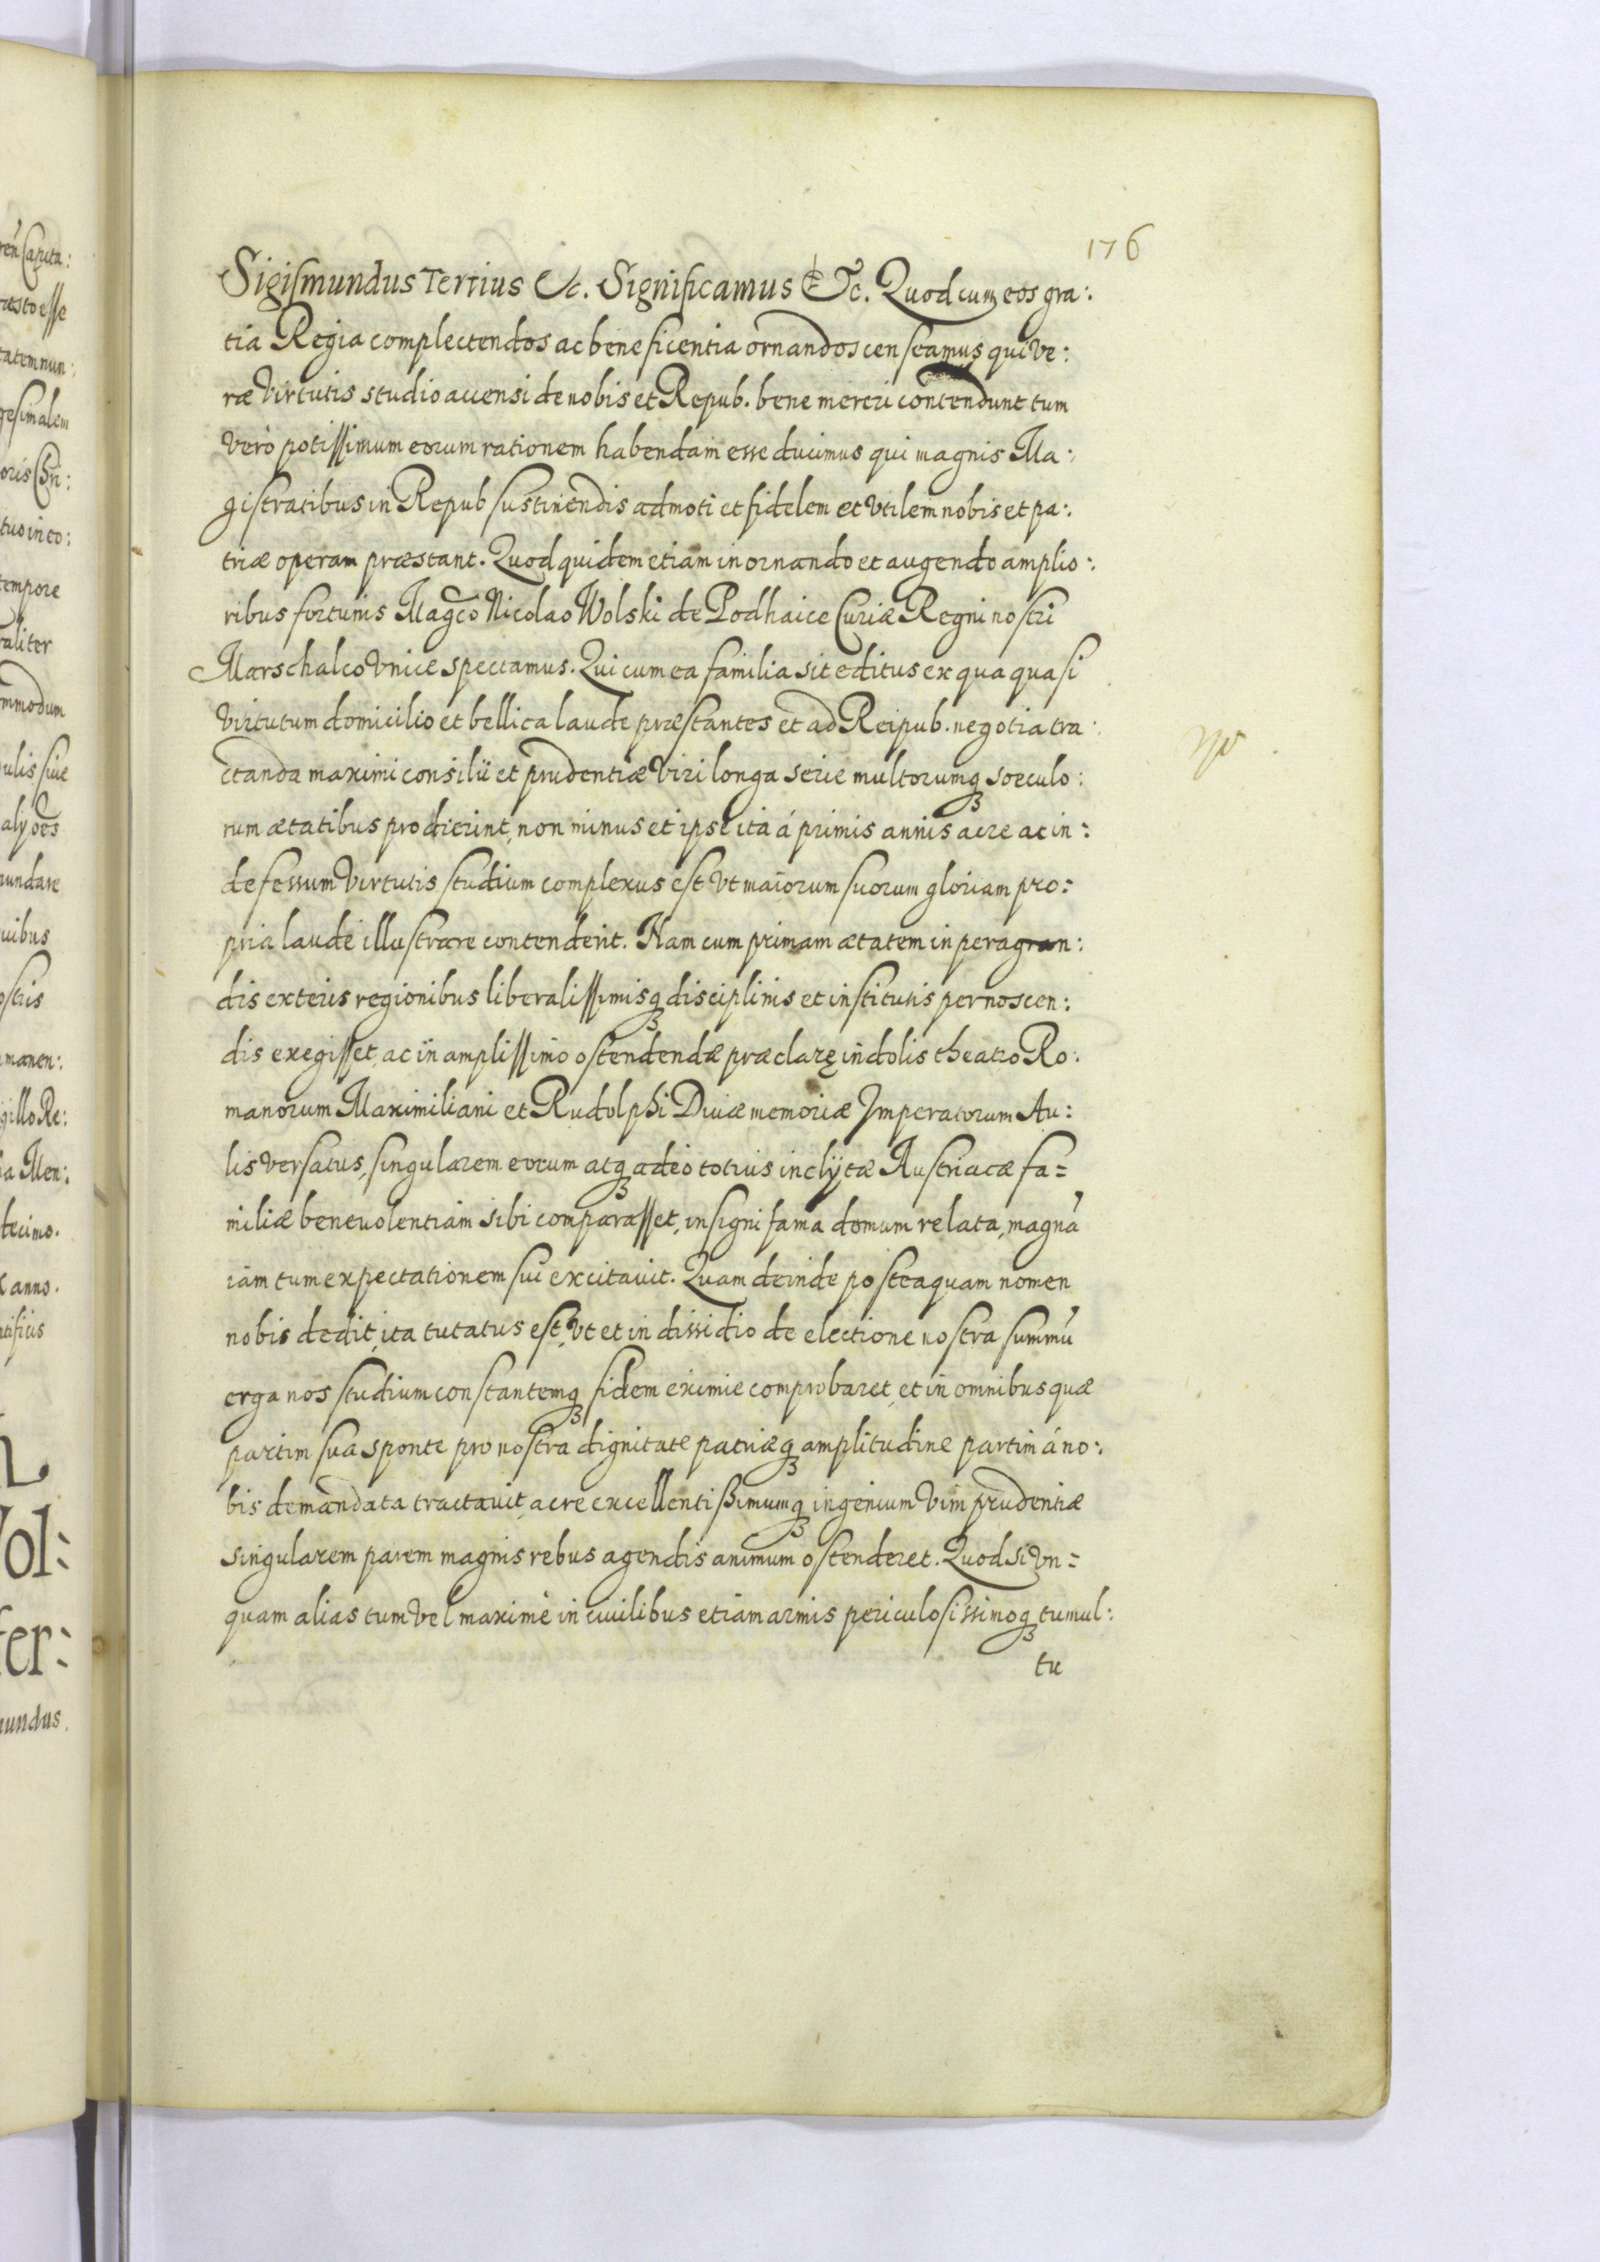 176
Sigismundus Tertius &c. Significamus &c. Quod cum eos gra:
tia Regia complectendos ac beneficentia ornandos censeamus qui ve:
ræ virtutis studio accensi de nobis et Repub. bene mereri contendunt tum
vero potissimum eorum rationem habendam esse ducimus qui magnis Ma:
gistratibus in Repub sustinendis admoti et fidelem et utilem nobis et pa:
triæ operam præstant. Quod quidem etiam in ornando et augendo amplio:
ribus fortunis Magco Nicolao Wolski de Podhaice Curiæ Regni nostri
Marschalco Vnice spectamus. Qui cum ea familia sit editus ex qua quasi
virtutum domicilio et bellica laude præstantes et ad Reipub. negotia tra:
ctanda maximi consilii et prudentiæ viri longa serie multorumq3 sæculo:
rum ætatibus prodierint, non minus et ipse ita á primis annis acre ac in:
defessum virtutis studium complexus est vt maiorum suorum gloriam pro:
pria laude illustrare contenderit. Nam cum primam ætatem in peragran:
dis exteris regionibus liberalissimisq3 disciplinis et institutis pernoscen:
dis exegisset, ac in amplissimo ostendendæ præclarę indolis theatro Ro:
manorum Maximiliani et Rudolphi Divæ memoriæ Imperatorum Au:
lis versatus, singularem eorum atq3 adeo totius inclÿtæ Austriacæ fa=
miliæ benevolentiam sibi comparasset, insigni fama domum relata, magnā
iam tum expectationem sui excitavit. Quam deinde posteaquam nomen
nobis dedit, ita tutatus est, vt et in dissidio de electione nostra summū
erga nos studium constantemq3 fidem eximie comprobaret, et in omnibus quæ
partim sua sponte pro nostra dignitate patriæq3 amplitudine partim á no:
bis demandata tractavit, acre excellentißimumq3 ingenium vim prudentiæ
singularem parem magnis rebus agendis animum ostenderet. Quod si vn=
quam alias tum vel maximè in civilibus etiam armis periculosissimoq3 tumul:
tu